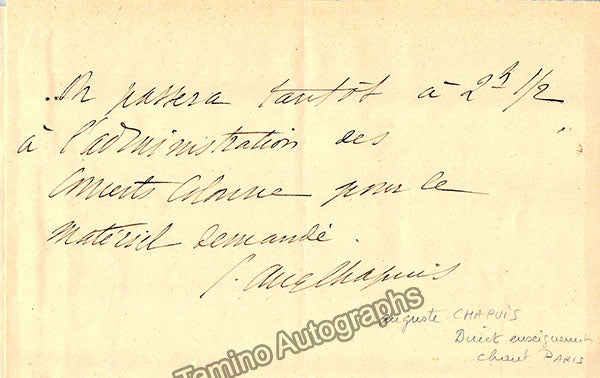 On passera tantôt à 2h 1/2
à l'administration des
Concerts Colonne pour le
matériel demandé.
Aug Chapuis
Auguste CHAPUIS
Direct enseignement
chant PARIS
Tamino Autographs